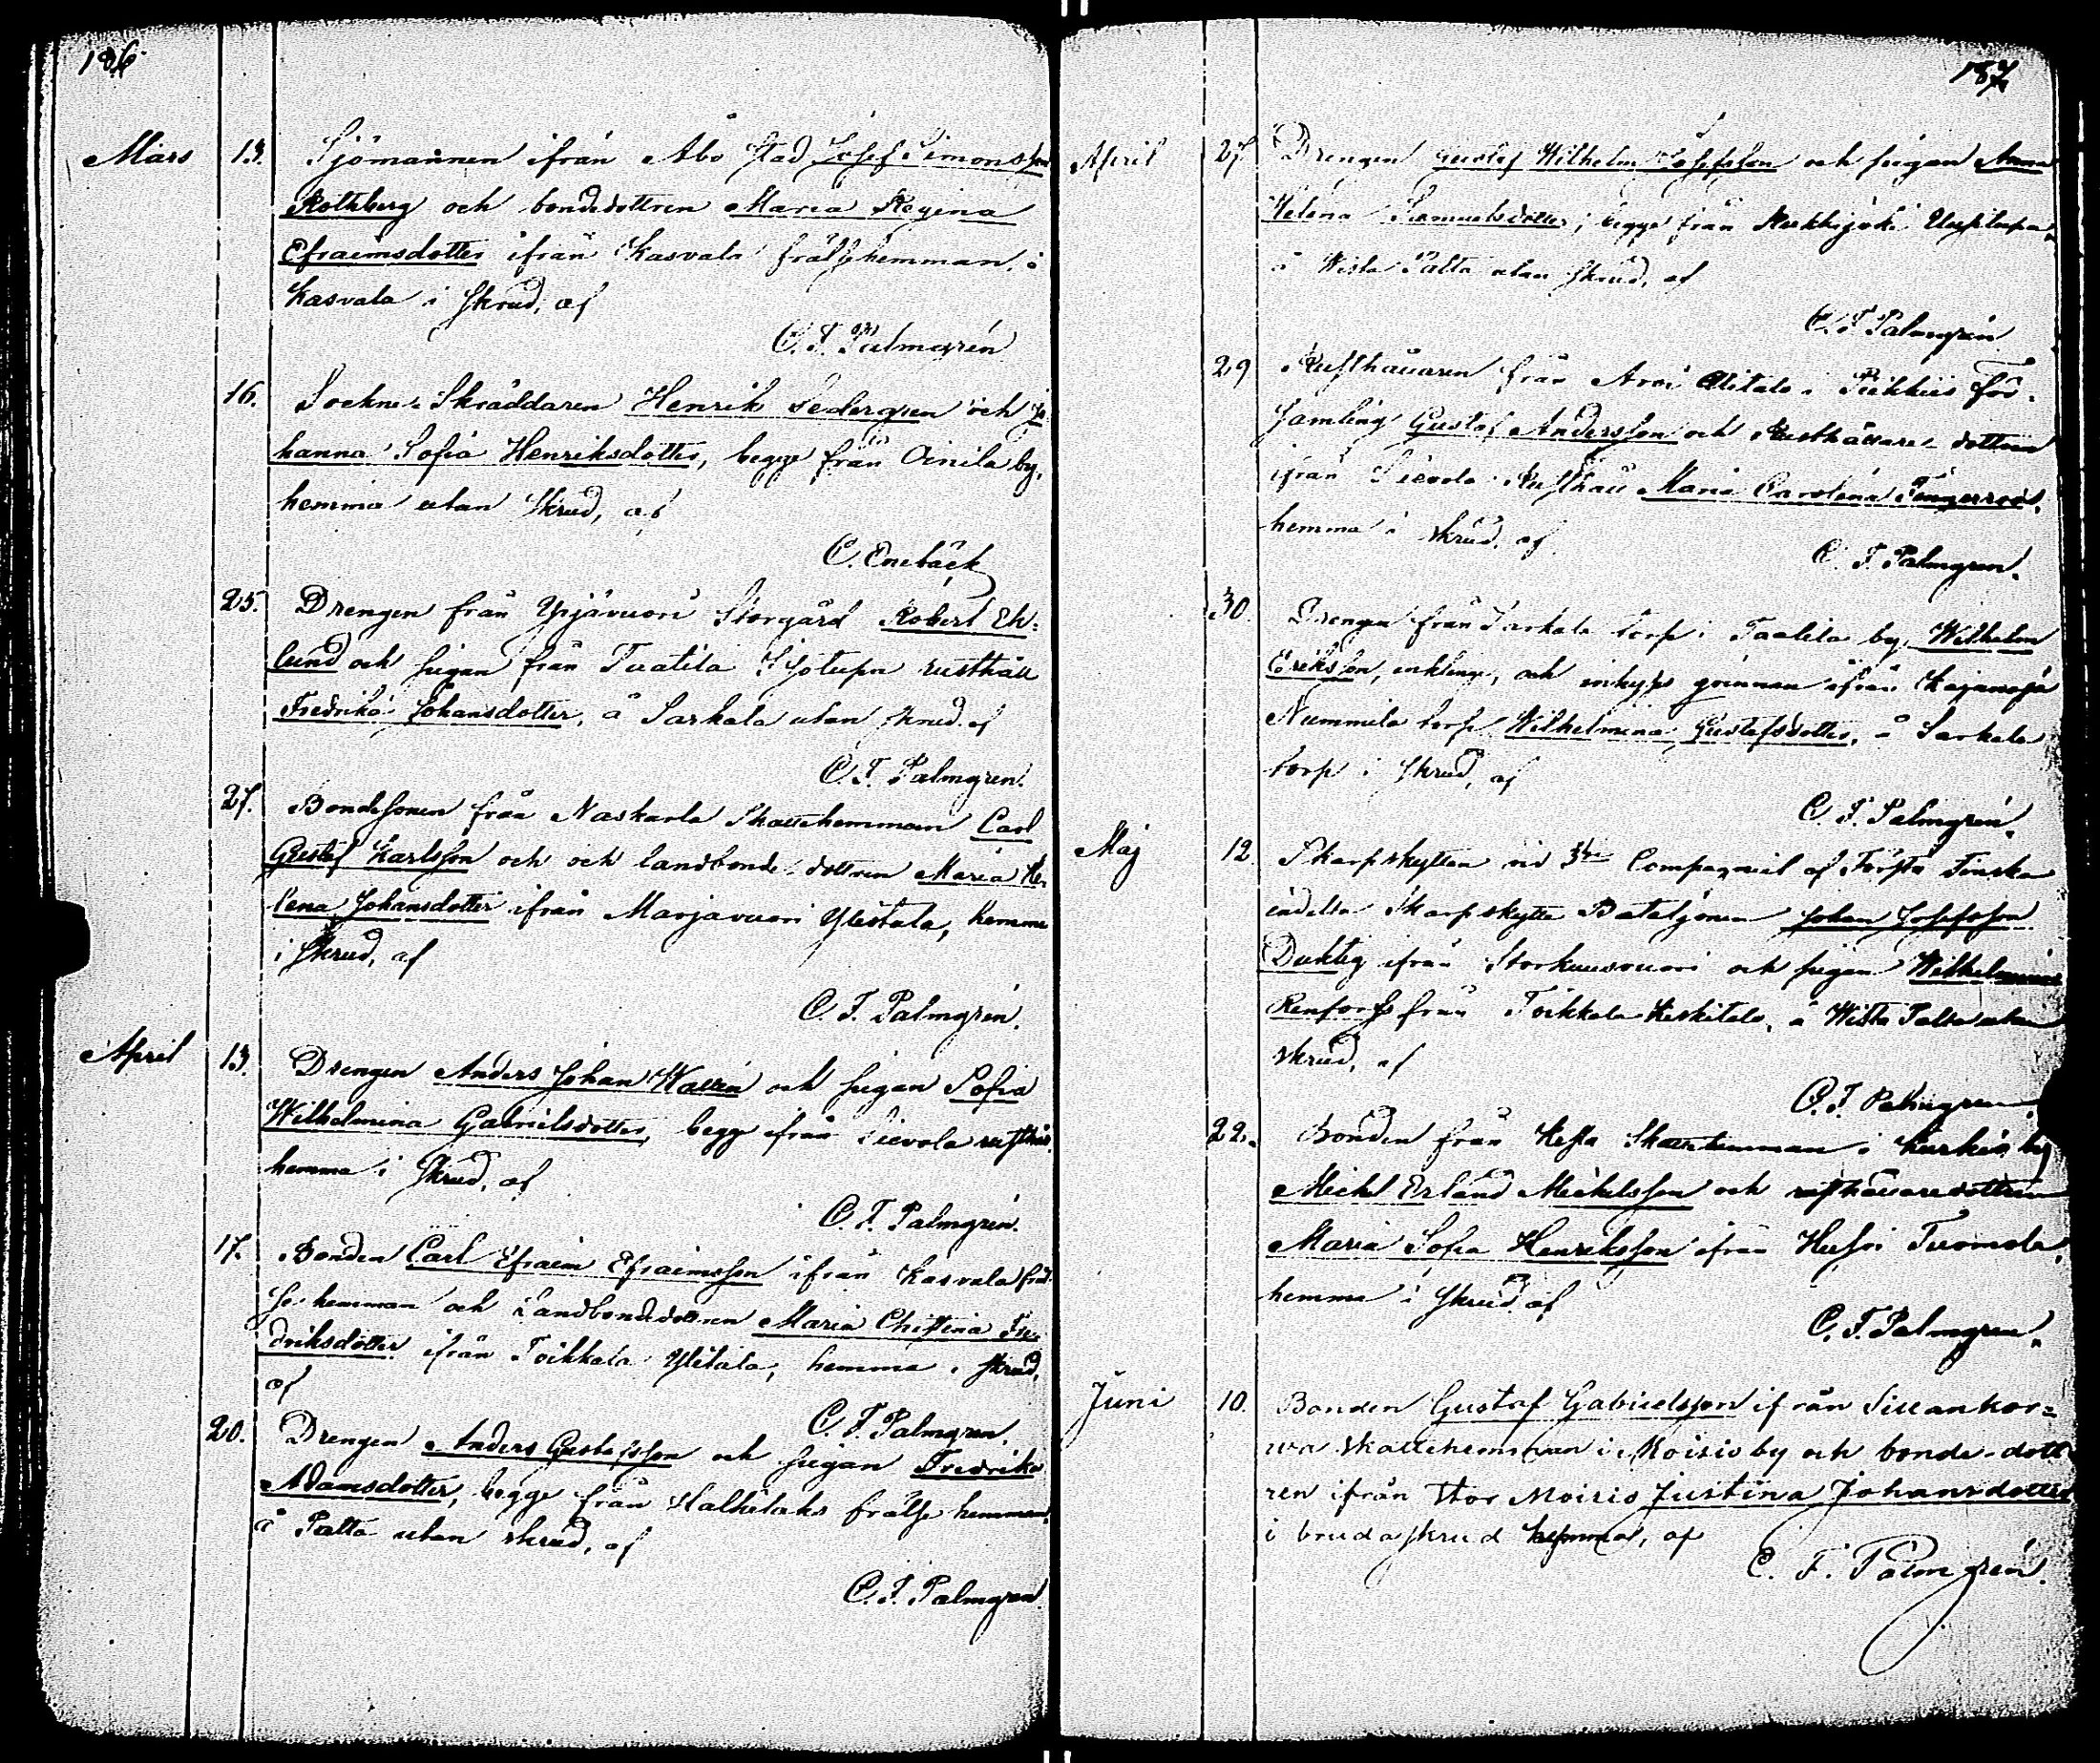 186.
Mars 13. Sjömannen ifrån Åbo stad Josef Simonsson
Rothberg och bondedottren Maria Regina
Efraimsdotter ifrån Kasvala frälsehemman, å
Kasvala i skrud, af
C. F. Palmgrén
16. Sockne-Skräddaren Henrik Sedergren och Jo-
hanna Sofia Henriksdotter, begge från Oinila by,
hemma utan skrud, af
C. Enebäck
25. Drengen från Yrjävuori Storgård Robert Ek-
lund och pigan från Tuatila Isotupa rusthåll
Fredrika Johansdotter, å Sarkala utan skrud af
C. F. Palmgren.
27. Bondesonen från Naskarla Skattehemman Carl
Gustaf Karlsson och och landbonde-dottren Maria He-
lena Johansdotter ifrån Marjavuori Ylistalo, hemma
i skrud, af
C. F. Palmgrén.
April 13. Drengen Anders Johan Wallin och pigan Sofia
Wilhelmina Gabrielsdotter, begge ifrån Lievola rusthåll,
hemma i skrud, af
C. F. Palmgrén.
17. Bonden Carl Efraim Efraimsson ifrån Kasvala fräl-
se hemman och Landbondedottren Maria Christina Fre-
driksdotter ifrån Toikkala Ylitalo, hemma i skrud,
af
C. F. Palmgren.
20. Drengen Anders Gustafsson och pigan Fredrika
Adamsdotter, begge från frälse hemman,
å Palta utan skrud, af
C. F. Palmgren.
187
April 27. Drengen Gustaf Wilhelm Josefsson och pigan Anna
Helena Samuelsdotter, begge från Uusitupa,
å Wista Palta utan skrud, af
C. F. Palmgrén
29 Rusthållaren från Arvi Alitalo i Piikkiis För-
samling Gustaf Andersson och Rusthållare-dottren
ifrån Lievola Rusthåll Maria Carolina
hemma i skrud, af
C. F. Palmgren.
30. Drengen från Sarkala torp i Taatila by Wilhelm
Eriksson, enkling, och inhyses qvinnan ifrån
Nummila torp Wilhelmina Gustafsdotter, å Sarkala
torp i skrud, af
C. F. Palmgrén.
Maj 12. Skarpskytten vid 3dje Compagniet af Första Finska
indelta Skarpskytte Bataljonen Johan Josefsson
Duktig ifrån Storkuusvuori och pigan Wilhelmina
Renfors från Toikkala Keskitalo, å Wista Palta utan
skrud, af
C. F. Palmgren.
22. Bonden från Skattehemman i Kurkis by
Mickel Erland Mickelsson och rusthållaredottren
Maria Sofia Henriksson ifrån Tuomola,
hemma i skrud af
C. F. Palmgren.
Juni 10. Bonden Gustaf Gabrielsson ifrån Sillankor-
wa skattehemman i Moisio by och bonde-dott-
ren ifrån Stor Moisio Justina Johansdotter
i brudaskrud hemma, af
C. F. Palmgrén.